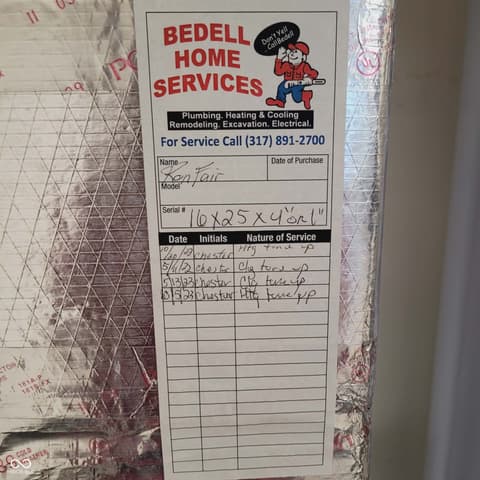 BEDELL
HOME
SERVICES
Don't Yell
Call Bedell
Plumbing. Heating & Cooling
Remodeling. Excavation. Electrical.
For Service Call (317) 891-2700
Name Date of Purchase
Ron Fair
Model
Serial # 16x25x4" or 1"
Date Initials Nature of Service
Chester Htg tune up
Chester Clg tune up
5/3/23 Chester Clg tune up
10/5/23 Chester Htg tune up